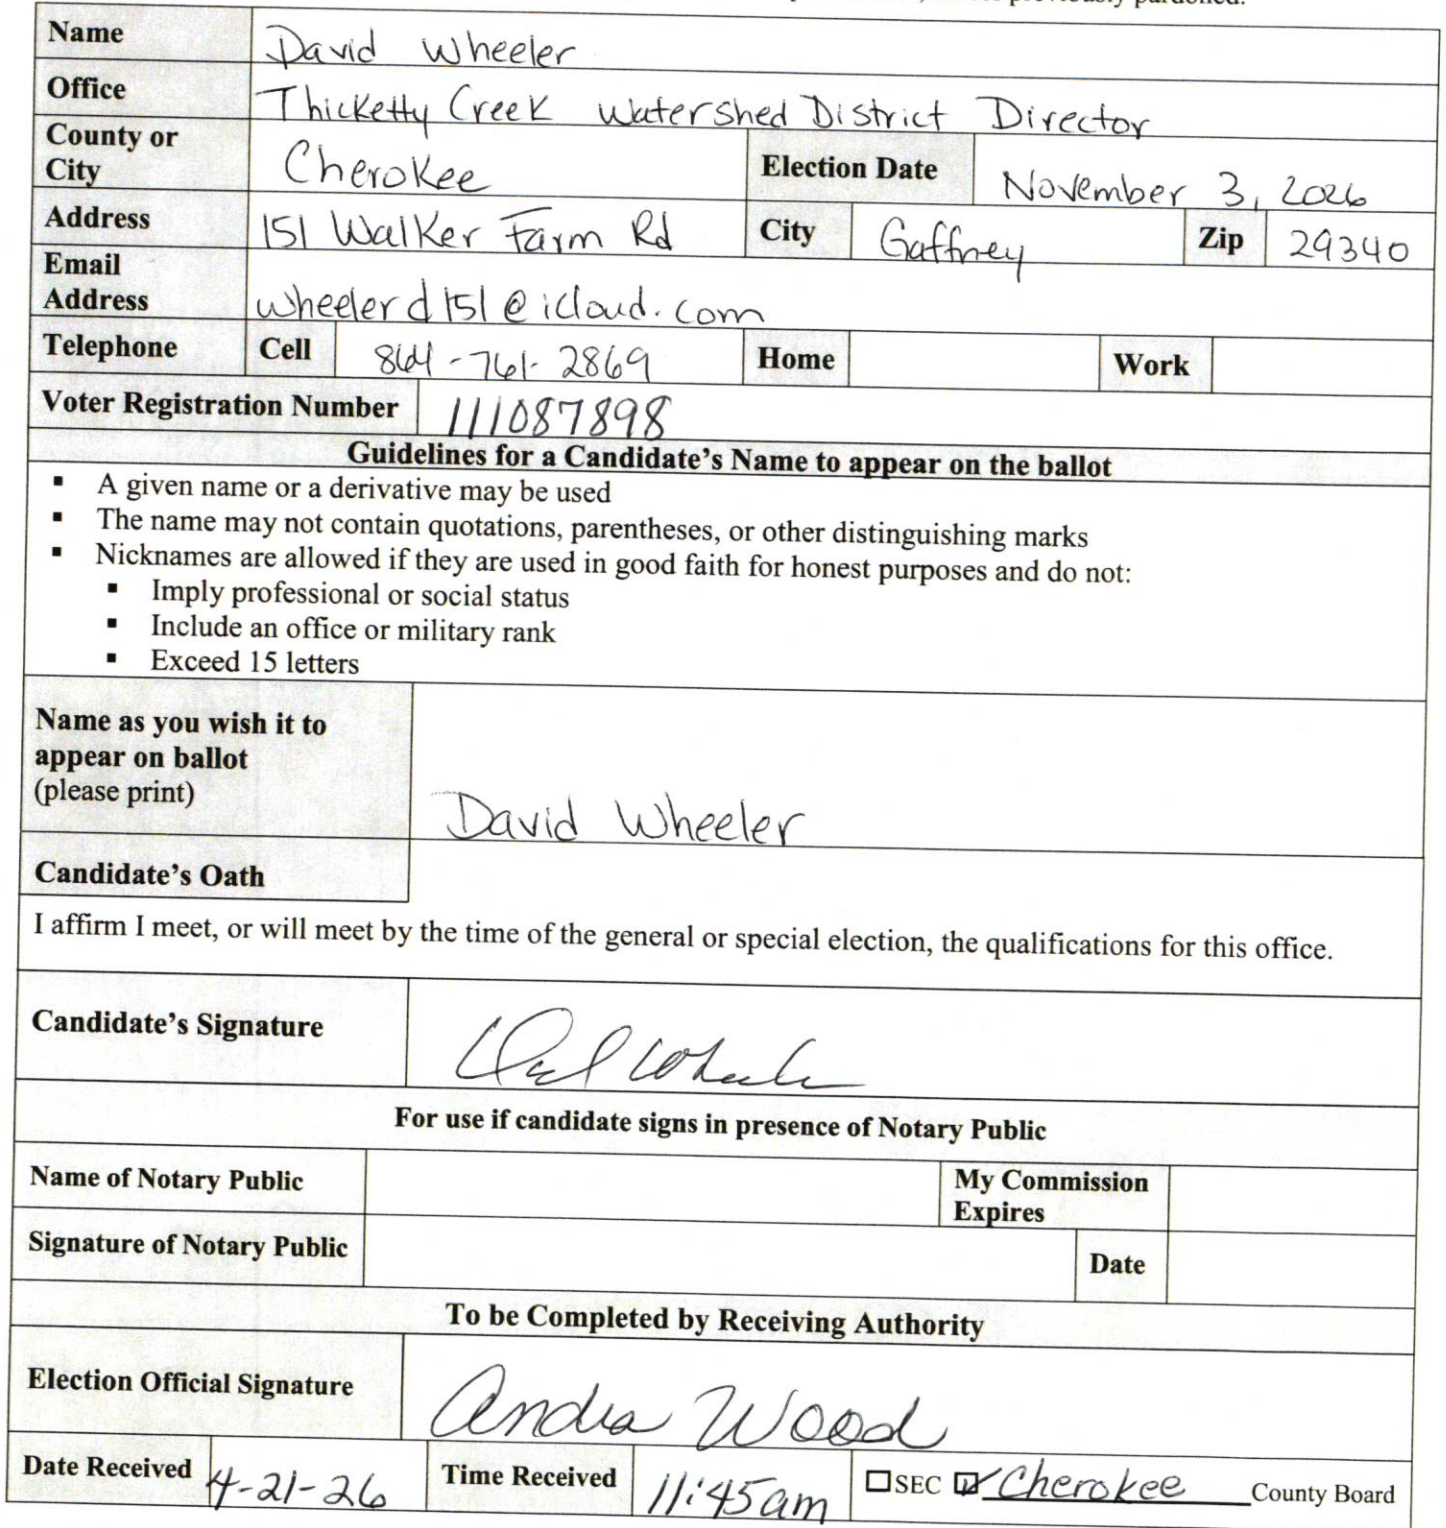 previously pardoned.
Name David Wheeler
Office Thicketty Creek Watershed District Director
County or City Cherokee Election Date November 3, 2026
Address 151 Walker Farm Rd City Gaffney Zip 29340
Email Address wheelerd151@icloud.com
Telephone Cell 864-761-2869 Home Work
Voter Registration Number 111087898
Guidelines for a Candidate's Name to appear on the ballot
▪ A given name or a derivative may be used
▪ The name may not contain quotations, parentheses, or other distinguishing marks
▪ Nicknames are allowed if they are used in good faith for honest purposes and do not:
▪ Imply professional or social status
▪ Include an office or military rank
▪ Exceed 15 letters
Name as you wish it to
appear on ballot
(please print) David Wheeler
Candidate's Oath
I affirm I meet, or will meet by the time of the general or special election, the qualifications for this office.
Candidate's Signature
For use if candidate signs in presence of Notary Public
Name of Notary Public My Commission Expires
Signature of Notary Public Date
To be Completed by Receiving Authority
Election Official Signature Andra Wood
Date Received 4-21-26 Time Received 11:45am ☐ SEC ☑ Cherokee County Board